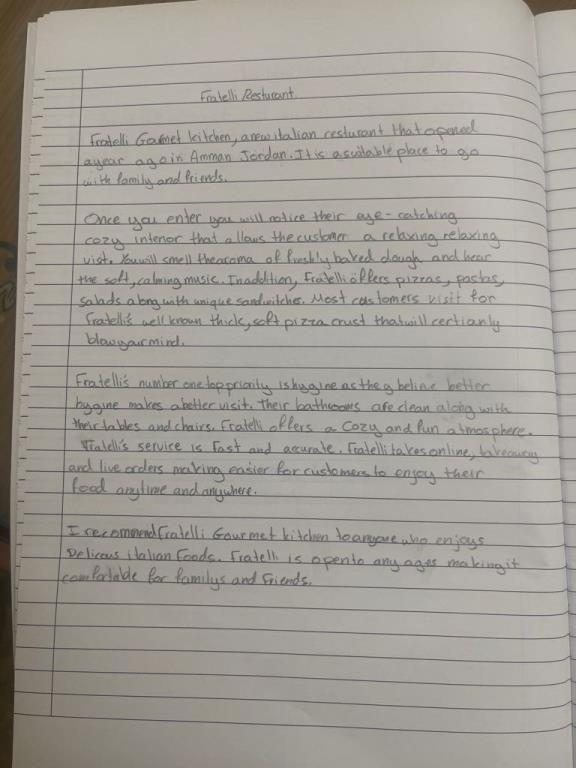 Fratelli Resturant
Fratelli Gormet kitchen, a new italian resturant that opened
a year ago in Amman Jordan. It is a suitable place to go
with family and friends.
Once you enter you will notice their eye-catching
cozy interior that allows the customer a relaxing relaxing
vist. You will smell the aroma of freshly baked dough and hear
the soft, calming music. In addition, Fratelli offers pizzas, pastas,
salads along with unique sandwitches. Most customers visit for
Fratelli's well known thick, soft pizza crust that will certianly
blow your mind.
Fratelli's number one top priority is hygine as they belive better
hygine makes a better visit. Their bathrooms are clean along with
their tables and chairs. Fratelli offers a cozy and fun atmosphere.
Fratelli's service is fast and accurate. Fratelli takes online, takeaway
and live orders making easier for customers to enjoy their
food anytime and anywhere.
I recommend Fratelli Gourmet kitchen to anyone who enjoys
Delicous italian Foods. Fratelli is open to any ages making it
comfortable for familys and Friends.